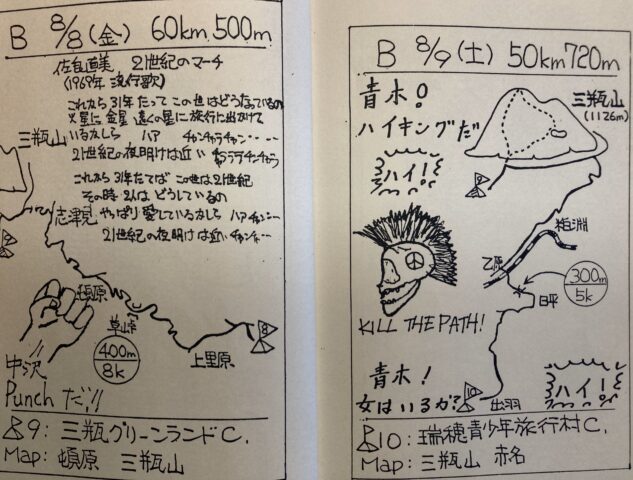 B 8/8(金) 60km 500m
佐良直美 21世紀のマーチ
(1969年 流行歌)
これから31年たって この世はどうなっているの
火星に金星 遠くの星に旅行に出かけて
いるかしら ハア チャンチャラチャン・・・
21世紀の夜明けは近い
これから31年たてば この世は21世紀
その時2人は どうしているの
やっぱり愛しているかしら ハアチャン・・
21世紀の夜明けは近い チャンチャ・・
三瓶山
志津見
頓原
草峠
400m
8k
上里原
8
9
中沢
Punch だ!!
9: 三瓶グリーンランドC.
Map: 頓原 三瓶山
B 8/9(土) 50km 720m
青木!
ハイキングだ
三瓶山
(1126m)
ハイ!
9
粕淵
乙原
300m
5k
日平
KILL THE PATH!
青木!
女はいるか?
10
出羽
ハイ!
10: 瑞穂青少年旅行村C.
Map: 三瓶山 赤名